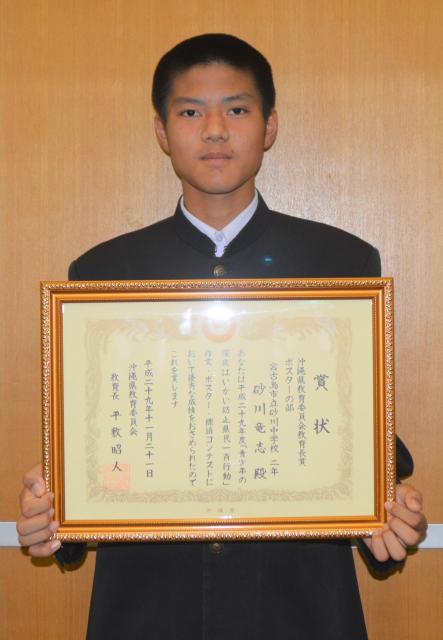 賞状
沖縄県教育委員会教育長賞
ポスターの部
宮古島市立砂川中学校 二年
砂川竜志 殿
あなたは平成二十九年度「青少年の
深夜はいかい防止県民一斉行動」
作文・ポスター・標語コンテストに
おいて優秀な成績をおさめられたので
これを賞します
平成二十九年十一月二十一日
沖縄県教育委員会
教育長 平敷昭人
沖縄県